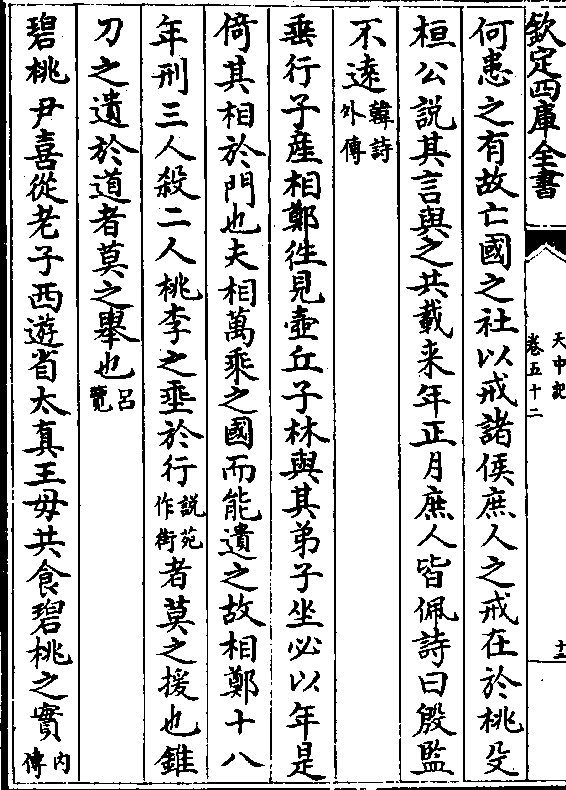 欽定四庫全書
天中記
卷五十二
十二
何患之有故亡國之社以戒諸侯庶人之戒在於桃殳
桓公説其言與之共載来年正月庶人皆佩詩曰殷監
不逺韓詩外傳
垂行子産相鄭徃見壺丘子林與其弟子坐必以年是
倚其相於門也夫相萬乘之國而能遺之故相鄭十八
年刑三人殺二人桃李之垂於行説苑作街者莫之援也錐
刀之遺於道者莫之舉也吕覽
碧桃尹喜從老子西遊省太真王母共食碧桃之實内傳